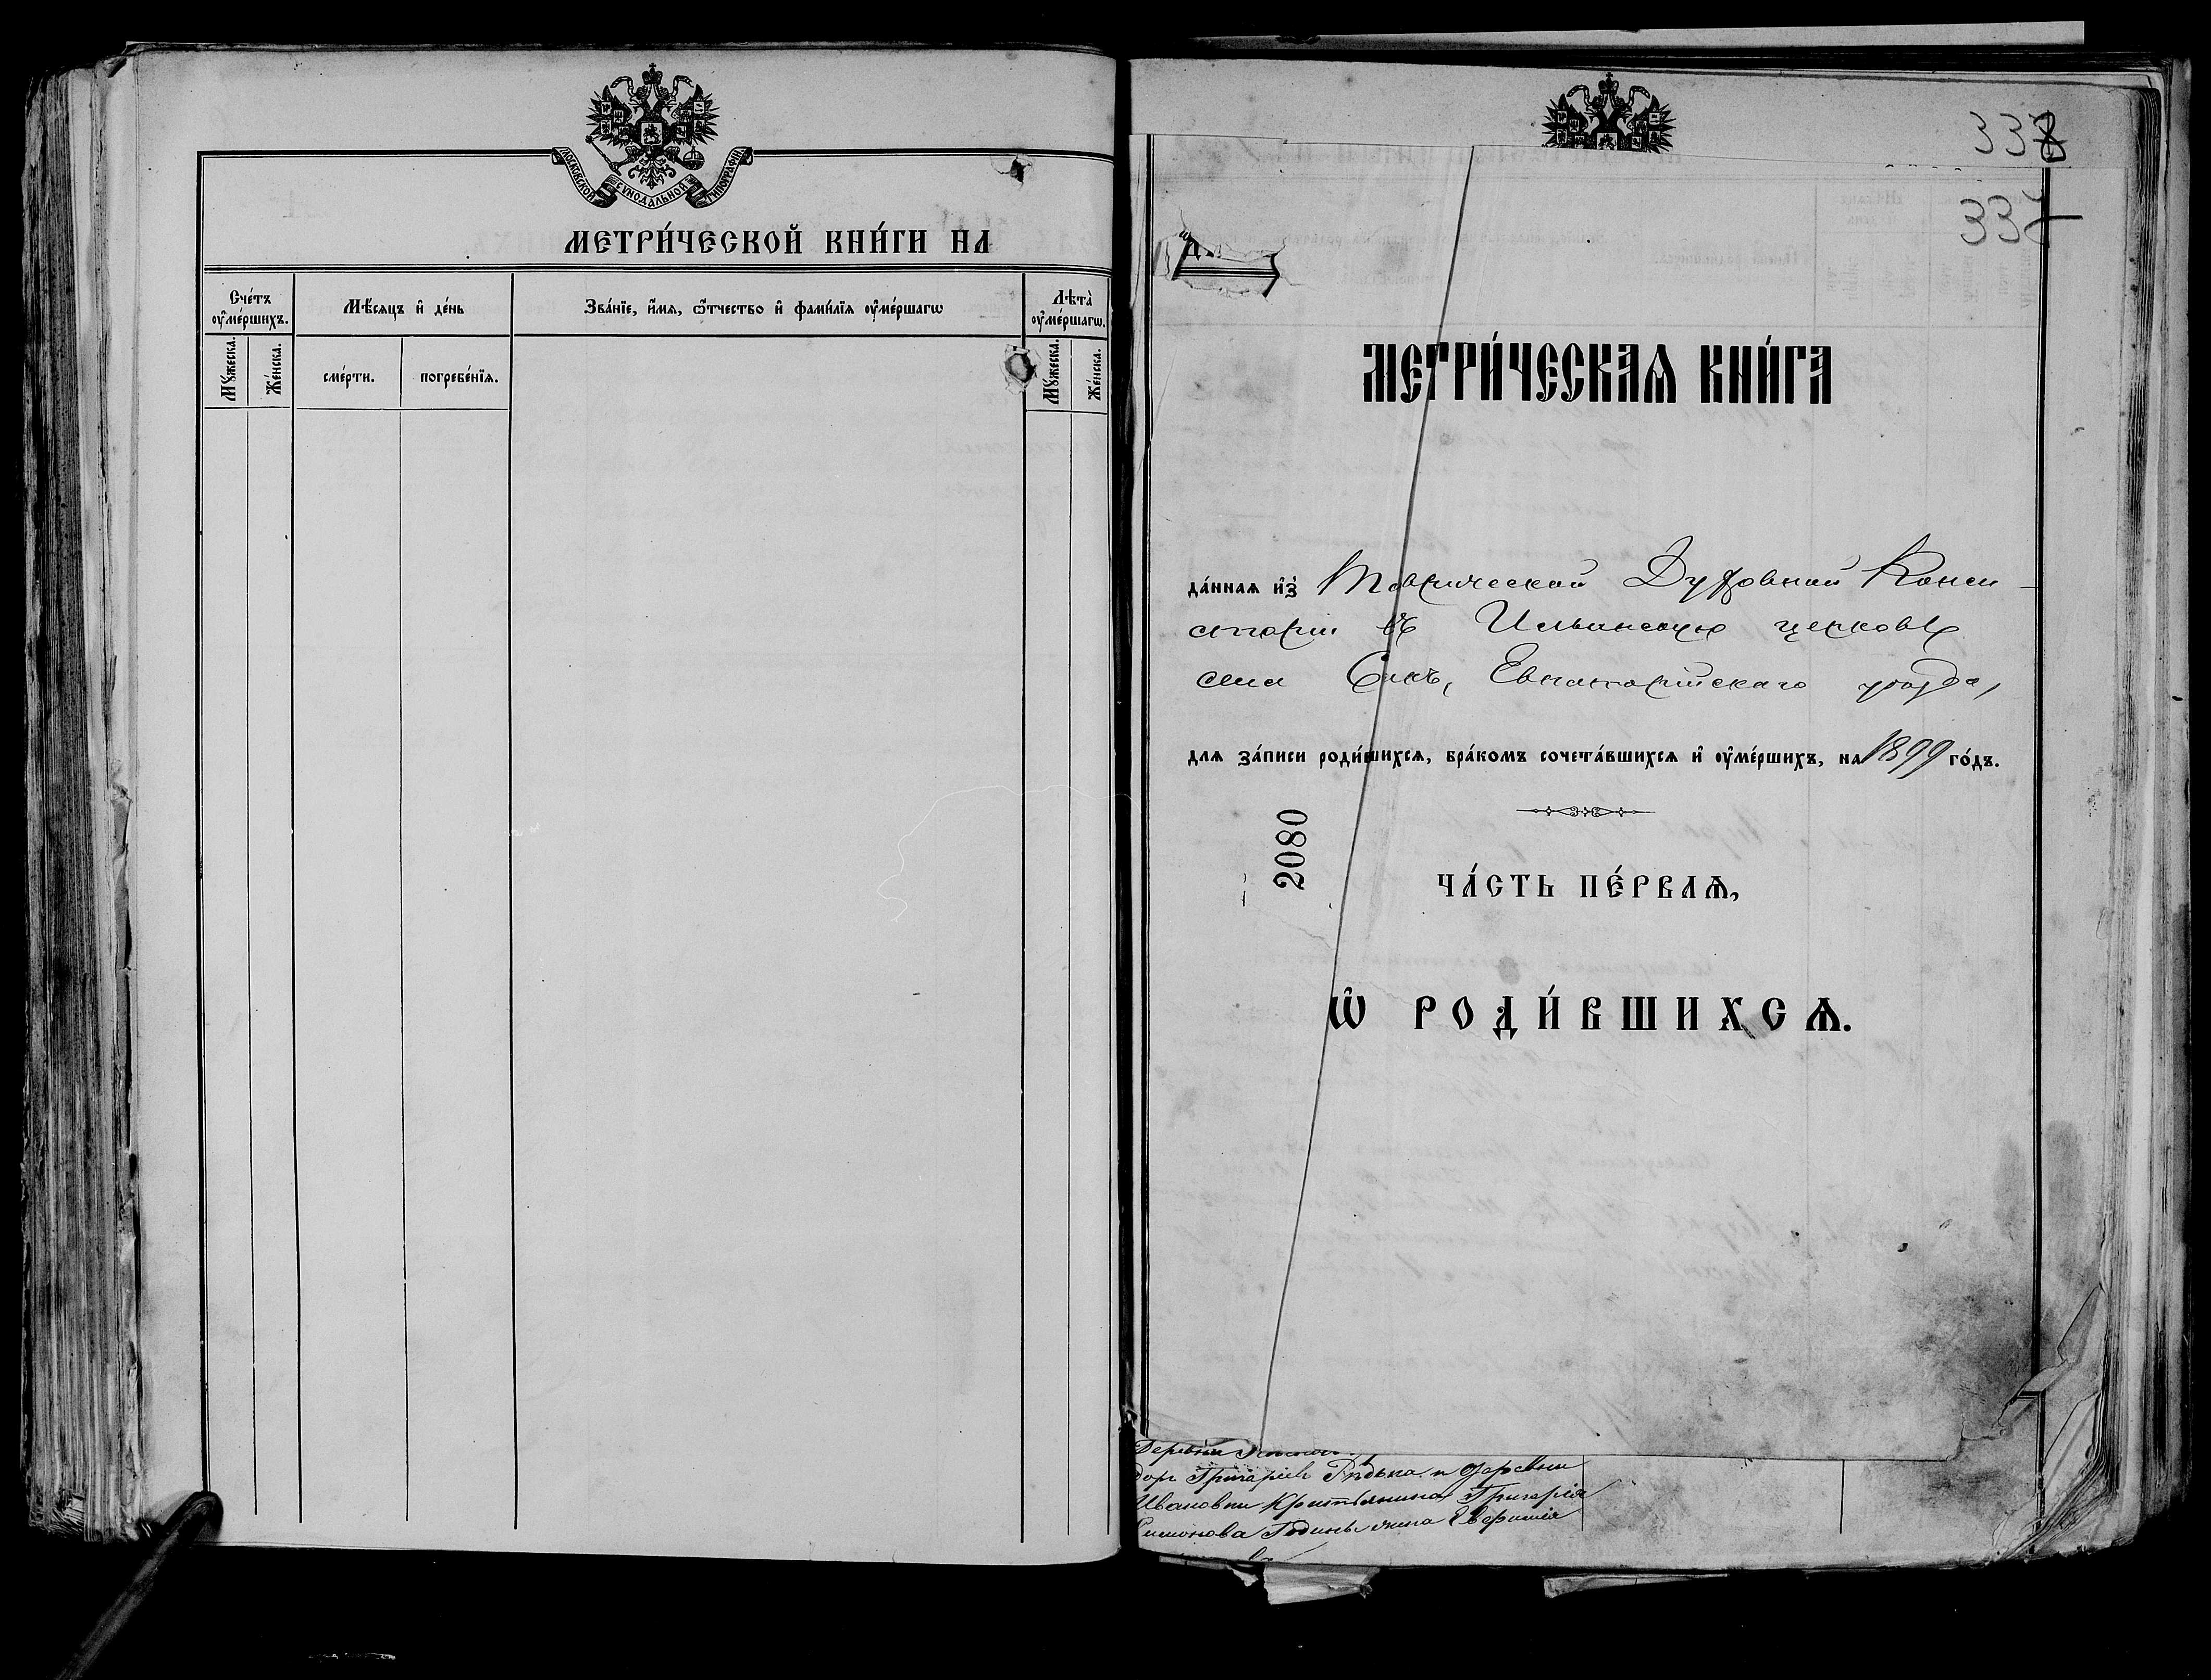 МОСКОВСКОЙ СѴНОДАЛЬНОЙ ТИПОГРАФІИ
МЕТРИ́ЧЕСКОЙ КНИ́ГИ НА
Сче́тъ оу҆ме́ршихъ.
Мѣ́сяцъ и҆ де́нь
Зва́нїе, и҆́мѧ, ѻ҆́тчество и҆ фами́лїѧ оу҆ме́ршагѡ
Лѣта̀ оу҆ме́ршагѡ.
Мꙋ́жеска.
Же́нска.
сме́рти.
погребе́нїѧ.
Мꙋ́жеска.
Же́нска.
338
337
МЕТРИ́ЧЕСКАѦ КНИ́ГА
да́ннаѧ и҆з̾ Таврической Духовной Конси-
сторіи въ Ильинскую церковь
села Сакъ, Евпаторійскаго уѣзда,
длѧ за́писи роди́вшихсѧ, бра́комъ сочета́вшихсѧ и҆ оу҆ме́ршихъ, на 1899 го́дъ.
2080
ЧА́СТЬ ПЕ́РВАѦ,
Ѡ҆ РОДИ́ВШИХСѦ.
Деревни
Григоріевъ Рѣдька и
Ивановны Крестьянина Григорія
Симонова жена